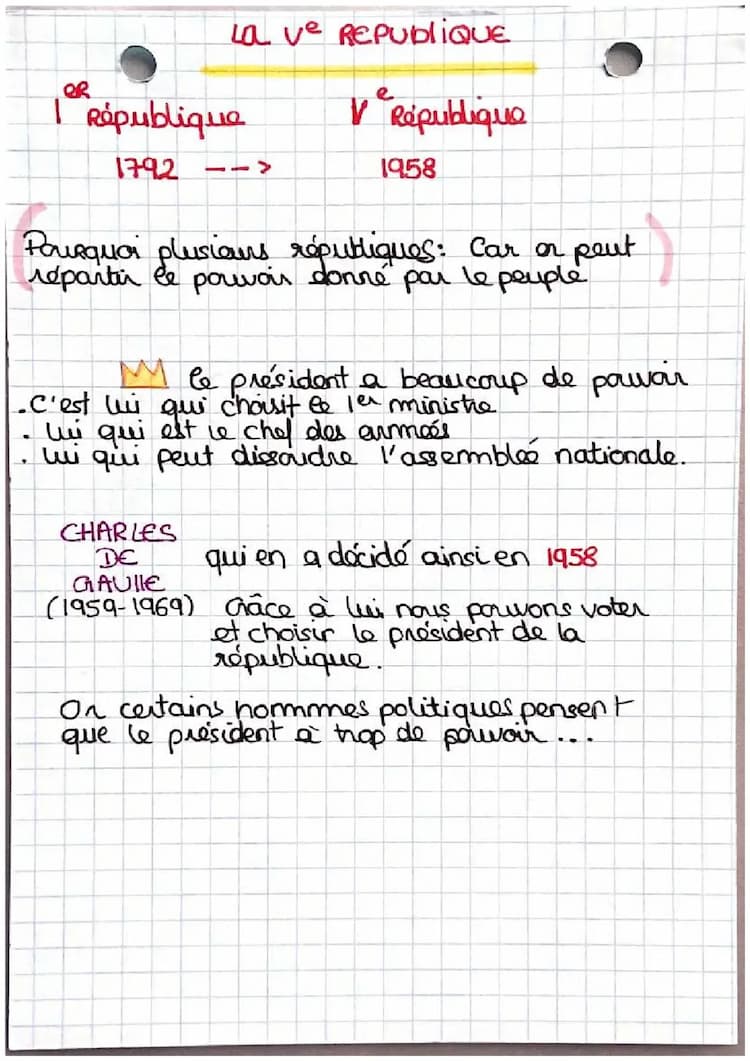 La Ve REPUBLIQUE
1ER République Ve République
1792 --> 1958
(Pourquoi plusieurs républiques: Car on peut)
répartir le pouvoir donné par le peuple
le président a beaucoup de pouvoir
.C'est lui qui choisit le 1er ministre
. lui qui est le chef des armées
. lui qui peut dissoudre l'assemblée nationale.
CHARLES
DE qui en a décidé ainsi en 1958
GAULLE
(1959-1969) Grâce à lui nous pouvons voter
et choisir le président de la
république.
Or certains hommmes politiques pensent
que le président à trop de pouvoir ...